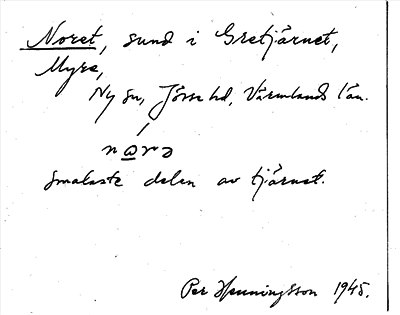 Noret, sund i Gretjärnet,
Myra,
Ny sn, Jösse hd, Värmlands län.
smalaste delen av tjärnet.
Per Henningsson 1945.